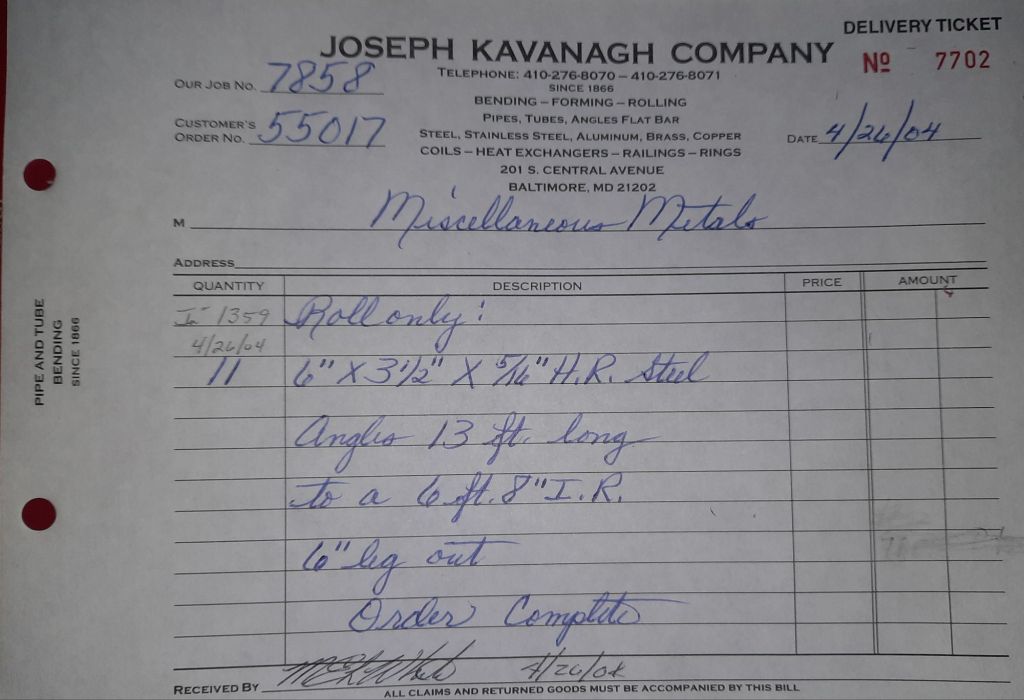 DELIVERY TICKET
JOSEPH KAVANAGH COMPANY
Nº 7702
TELEPHONE: 410-276-8070 – 410-276-8071
SINCE 1866
OUR JOB NO. 7858
BENDING – FORMING – ROLLING
PIPES, TUBES, ANGLES FLAT BAR
CUSTOMER'S
ORDER NO. 55017
STEEL, STAINLESS STEEL, ALUMINUM, BRASS, COPPER
DATE 4/26/04
COILS – HEAT EXCHANGERS – RAILINGS – RINGS
201 S. CENTRAL AVENUE
BALTIMORE, MD 21202
M Miscellaneous Metals
ADDRESS
QUANTITY DESCRIPTION PRICE AMOUNT
In 1359 Roll only:
4/26/04
11 6" X 3 1/2" X 5/16" H.R. Steel
Angles 13 ft. long
to a 6 ft. 8" I.R.
6" leg out
Order Complete
RECEIVED BY 4/26/04
ALL CLAIMS AND RETURNED GOODS MUST BE ACCOMPANIED BY THIS BILL
PIPE AND TUBE
BENDING
SINCE 1866